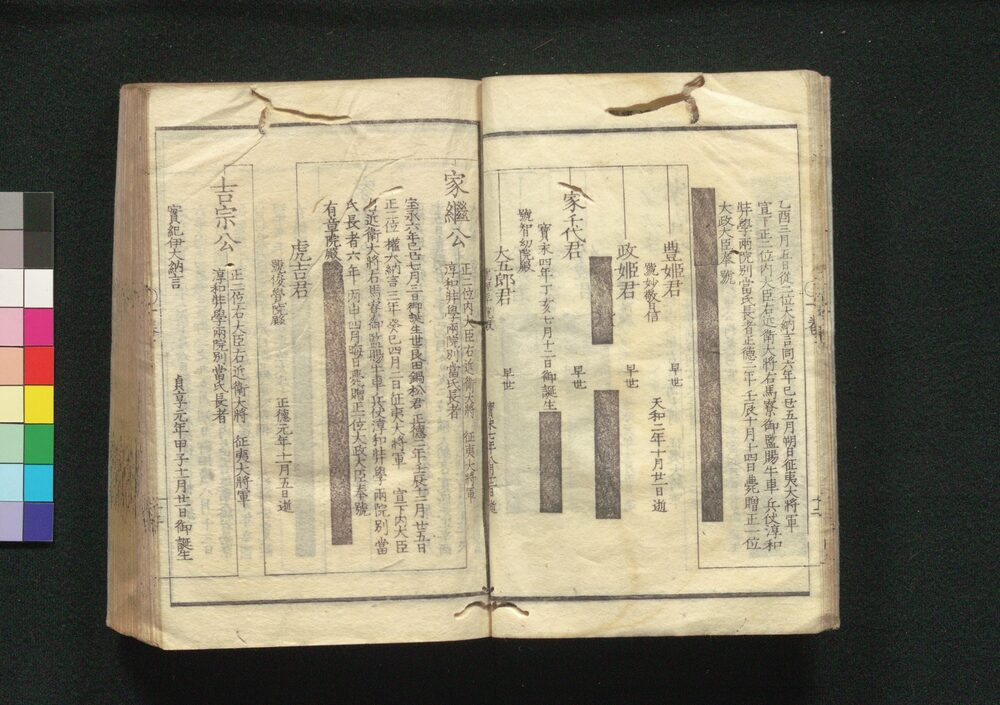 乙酉三月五日從二位大納言同六年己丑五月朔日征夷大將軍
宣下正二位内大臣右近衛大將右馬寮御監賜牛車兵仗淳和
奘學兩院別當氏長者正德二年壬辰十月十四日薨贈正一位
太政大臣奉號
豊姬君 早世
號妙敬日信 天和二年十月廿一日逝
政姬君 早世
家千代君 早世
寳永四年丁亥七月十一日御誕生
號智幻院殿
大五郎君
寳永七年八月十二日逝
家繼公 正二位内大臣右近衛大將 征夷大將軍
淳和奘學兩院別當氏長者
宝永六年己丑七月三日御誕生世良田鍋松君 正德二年壬辰十二月廿五日
正二位 權大納言三年癸巳四月二日征夷大將軍 宣下内大臣
右近衛大將右馬寮御監賜牛車兵仗淳和奘學兩院別當
氏長者六年丙申四月晦日薨贈正一位太政大臣奉號
有章院殿
虎吉君
號俊覺院殿 正德元年十一月五日逝
吉宗公 正二位右大臣右近衛大將 征夷大將軍
淳和奘學兩院別當氏長者
實紀伊大納言 貞享元年甲子十月廿一日御誕生